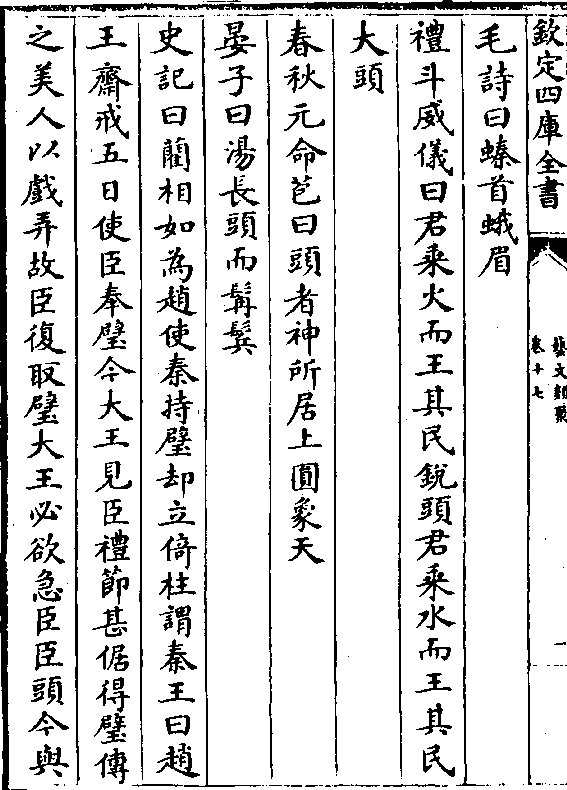 欽定四庫全書
藝文類聚
卷十七
一
毛詩曰螓首蛾眉
禮斗威儀曰君乘火而王其民銳頭君乘水而王其民
大頭
春秋元命苞曰頭者神所居上圓象天
晏子曰湯長頭而髯鬂
史記曰藺相如為趙使秦持璧却立倚柱謂秦王曰趙
王齋戒五日使臣奉璧今大王見臣禮節甚倨得璧傳
之美人以戲弄故臣復取璧大王必欲急臣臣頭今與